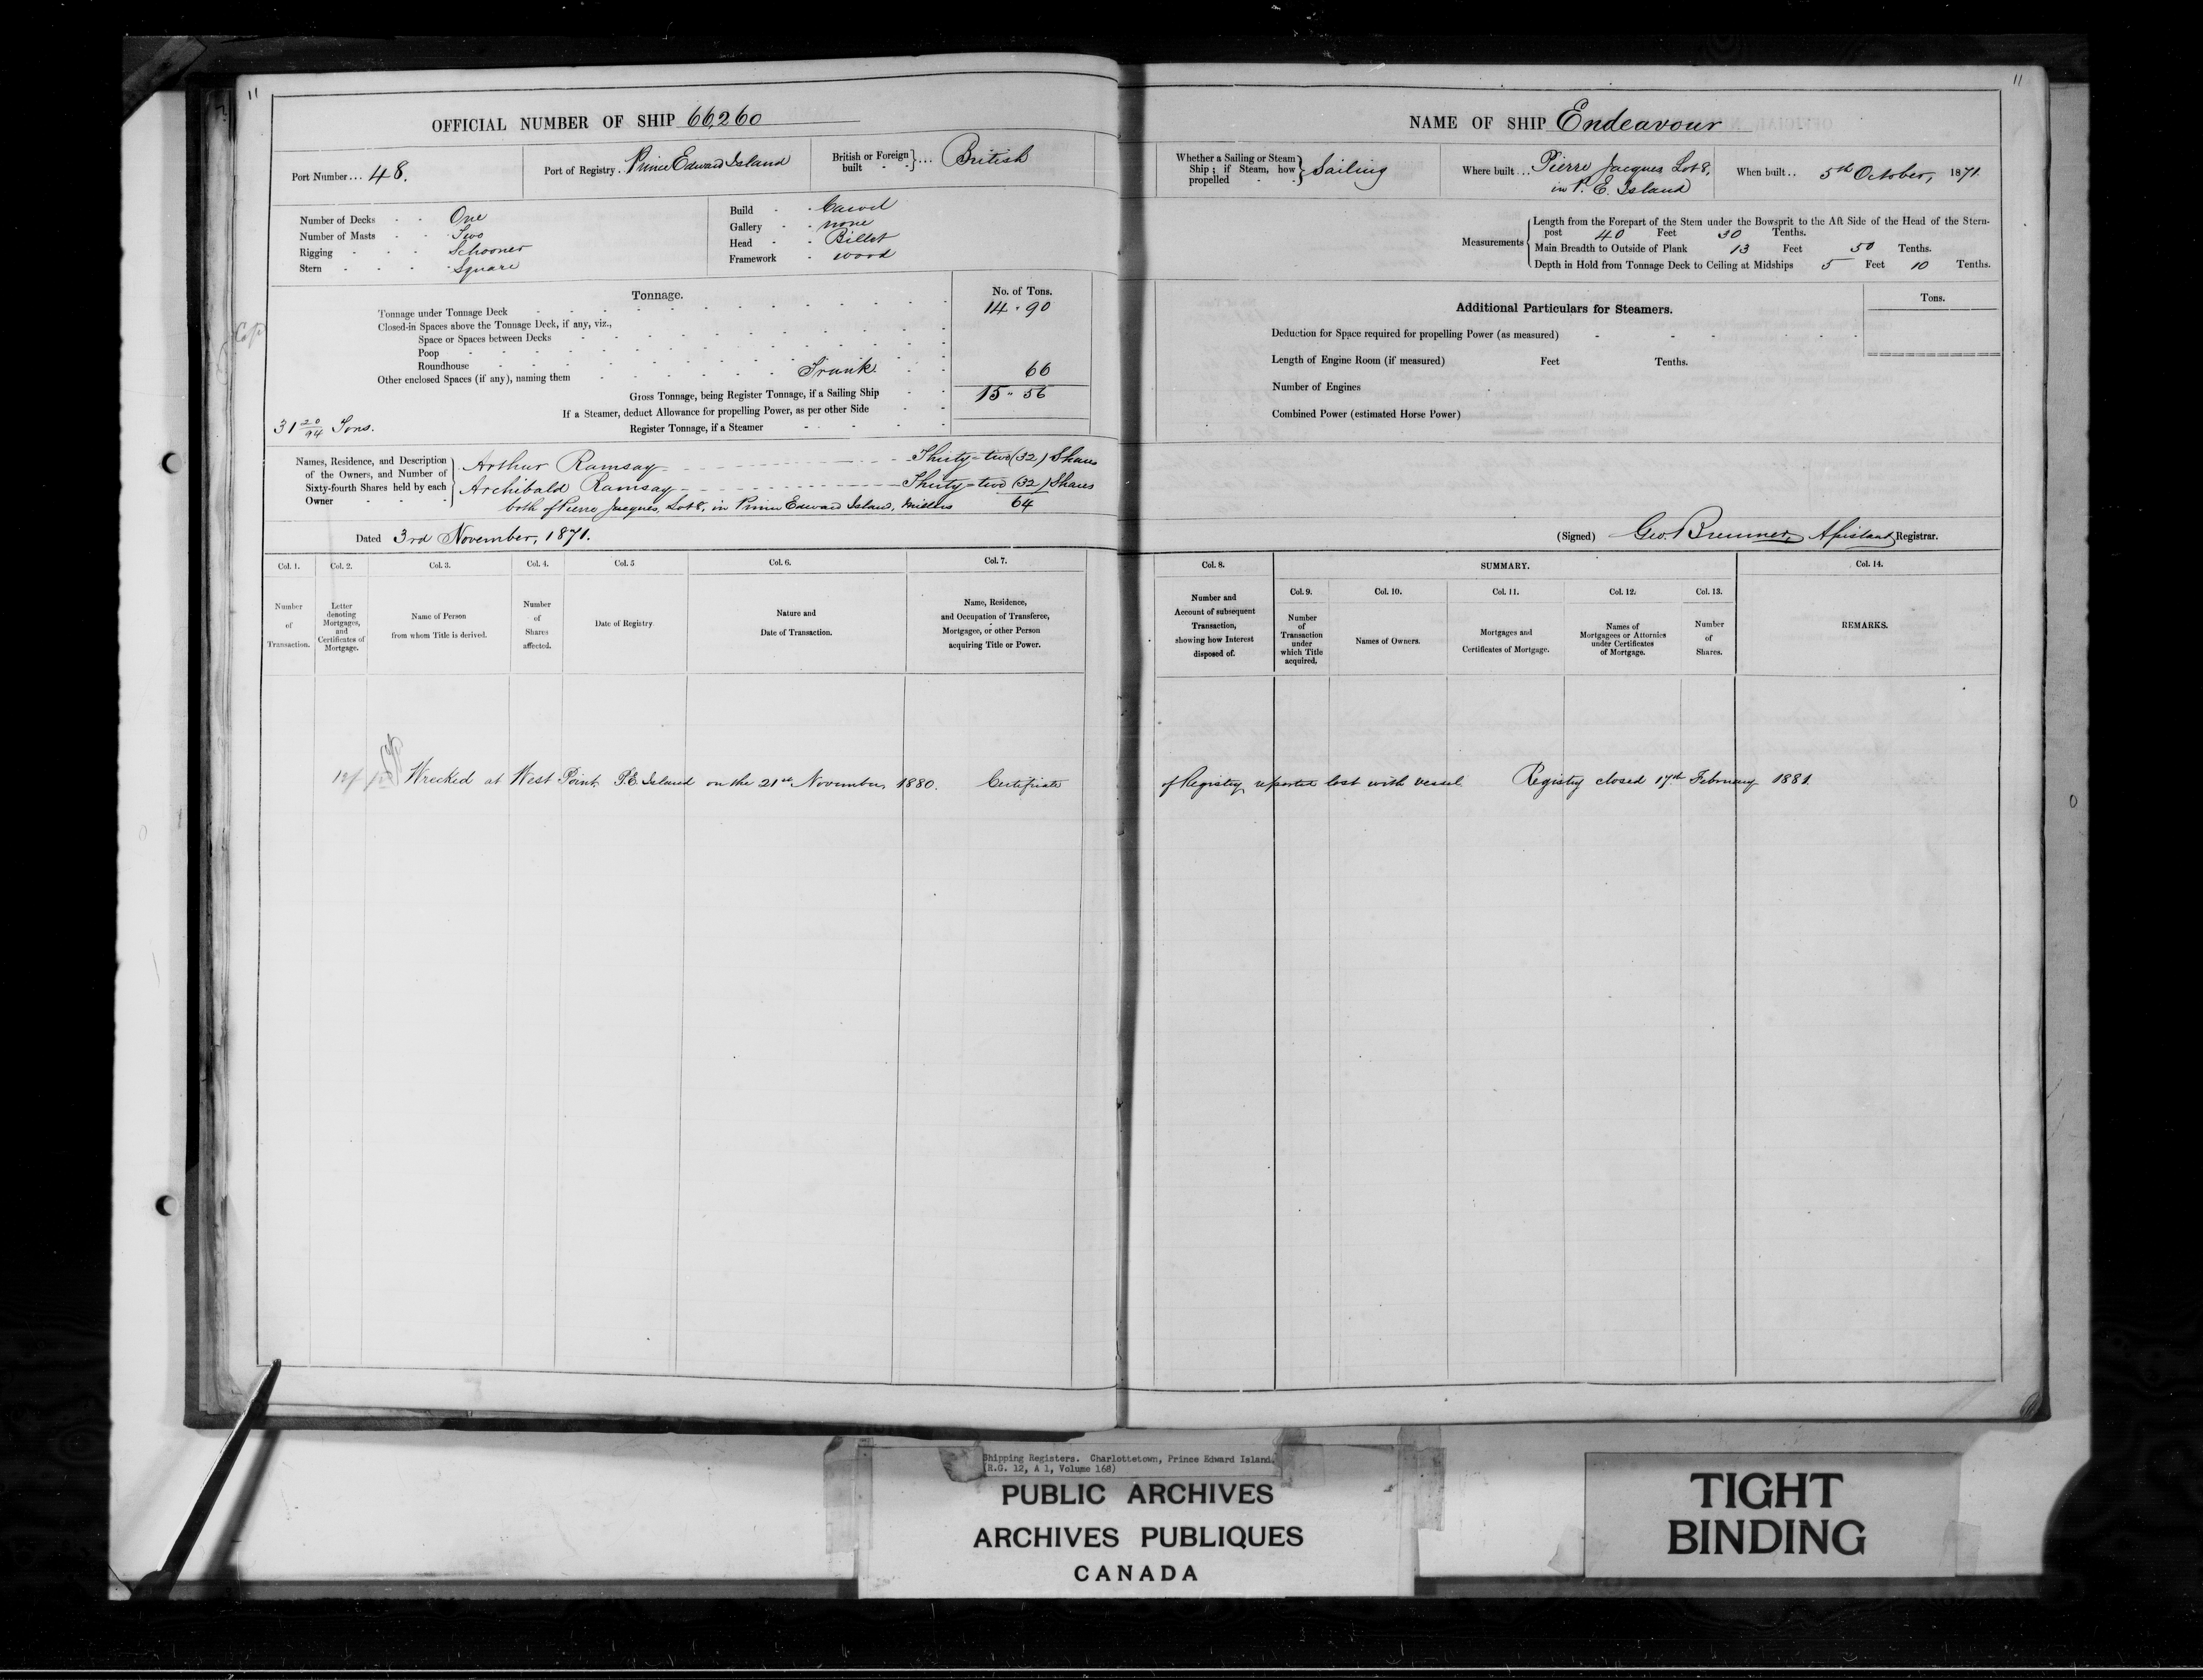 11
OFFICIAL NUMBER OF SHIP 66,260
Port Number ... 48.
Port of Registry . Prince Edward Island
British or Foreign built } ... British
Number of Decks - - One
Number of Masts - - Two
Rigging - - - Schooner
Stern - - - - Square
Build - - Carvel
Gallery - - none
Head - - Billet
Framework - wood
Tonnage.
No. of Tons.
Tonnage under Tonnage Deck 14 . 90
Closed-in Spaces above the Tonnage Deck, if any, viz.,
Space or Spaces between Decks
Poop
Roundhouse
Other enclosed Spaces (if any), naming them Trunk. 66
Gross Tonnage, being Register Tonnage, if a Sailing Ship 15 " 56
If a Steamer, deduct Allowance for propelling Power, as per other Side
31 20/94 Tons.
Register Tonnage, if a Steamer
Names, Residence, and Description
of the Owners, and Number of
Sixty-fourth Shares held by each
Owner
Arthur Ramsay Thirty=two (32) Shares
Archibald Ramsay Thirty=two (32) Shares
both of Pierre Jacques, Lot 8, in Prince Edward Island, Millers 64
Dated 3rd November, 1871.
Col. 1. Col. 2. Col. 3. Col. 4. Col. 5 Col. 6. Col. 7.
Number of Transaction.
Letter denoting Mortgages, and Certificates of Mortgage.
Name of Person from whom Title is derived.
Number of Shares affected.
Date of Registry.
Nature and Date of Transaction.
Name, Residence, and Occupation of Transferee, Mortgagee, or other Person acquiring Title or Power.
Wrecked at West Point, P.E. Island on the 21st November, 1880. Certificate
11
NAME OF SHIP Endeavour
Whether a Sailing or Steam Ship; if Steam, how propelled - } Sailing
Where built ... Pierre Jacques, Lot 8,
in P. E. Island
When built .. 5th October, 1871.
Measurements
Length from the Forepart of the Stem under the Bowsprit to the Aft Side of the Head of the Stern-
post 40 Feet 30 Tenths.
Main Breadth to Outside of Plank 13 Feet 50 Tenths.
Depth in Hold from Tonnage Deck to Ceiling at Midships 5 Feet 10 Tenths.
Additional Particulars for Steamers.
Tons.
Deduction for Space required for propelling Power (as measured)
Length of Engine Room (if measured) Feet Tenths.
Number of Engines
Combined Power (estimated Horse Power)
(Signed) Geo. Bremner, Assistant Registrar.
Col. 8. SUMMARY. Col. 14.
Col. 9. Col. 10. Col. 11. Col. 12. Col. 13.
Number and Account of subsequent Transaction, showing how Interest disposed of.
Number of Transaction under which Title acquired.
Names of Owners.
Mortgages and Certificates of Mortgage.
Names of Mortgagees or Attornies under Certificates of Mortgage.
Number of Shares.
REMARKS.
of Registry reported lost with vessel. Registry closed 17th February 1881.
Shipping Registers. Charlottetown, Prince Edward Island.
(R.G. 12, A 1, Volume 168)
PUBLIC ARCHIVES
ARCHIVES PUBLIQUES
CANADA
TIGHT
BINDING